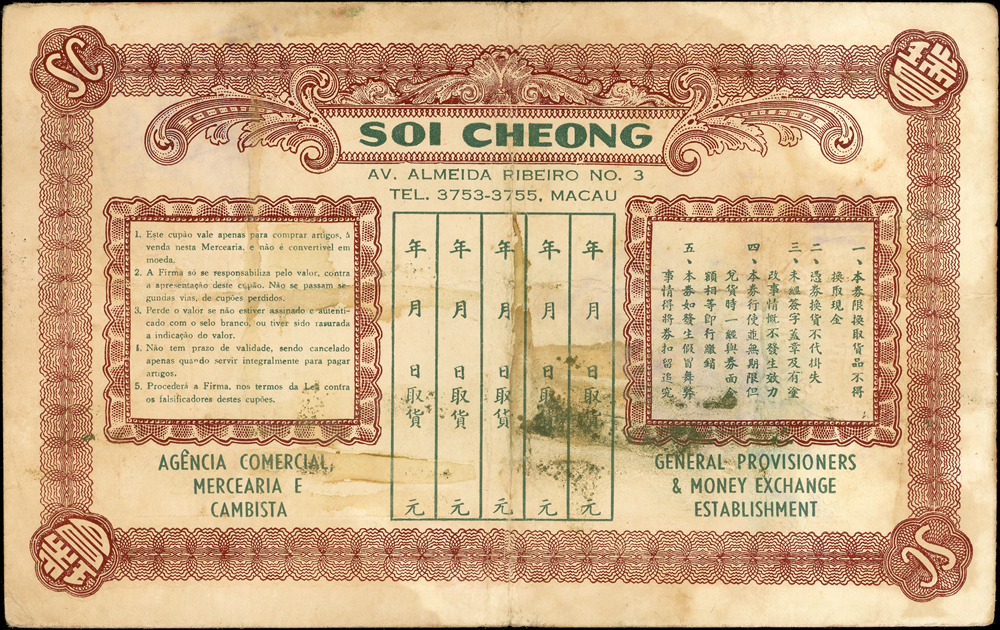 SC
瑞昌
SOI CHEONG
AV. ALMEIDA RIBEIRO NO. 3
TEL. 3753-3755, MACAU
1. Este cupão vale apenas para comprar artigos, à
venda nesta Mercearia, e não é convertivel em
moeda.
2. A Firma só se responsabiliza pelo valor, contra
a apresentação deste cupão. Não se passam se-
gundas vias, de cupões perdidos.
3. Perde o valor se não estiver assinado e autenti-
cado com o selo branco, ou tiver sido rasurada
a indicação do valor.
4. Não tem prazo de validade, sendo cancelado
apenas quando servir integralmente para pagar
artigos.
5. Procederá a Firma, nos termos da Lei contra
os falsificadores destes cupões.
年 月 日取貨 元
年 月 日取貨 元
年 月 日取貨 元
年 月 日取貨 元
年 月 日取貨 元
一、本券限換取貨品不得
換取現金
二、憑券換貨不代掛失
三、未經簽字蓋章及有塗
改事情慨不發生效力
四、本券行使並無期限但
兌貨時一經與券面金
額相等即行繳銷
五、本券如發生假冒舞弊
事情得將券扣留追究
AGÊNCIA COMERCIAL,
MERCEARIA E
CAMBISTA
GENERAL PROVISIONERS
& MONEY EXCHANGE
ESTABLISHMENT
瑞昌
SC